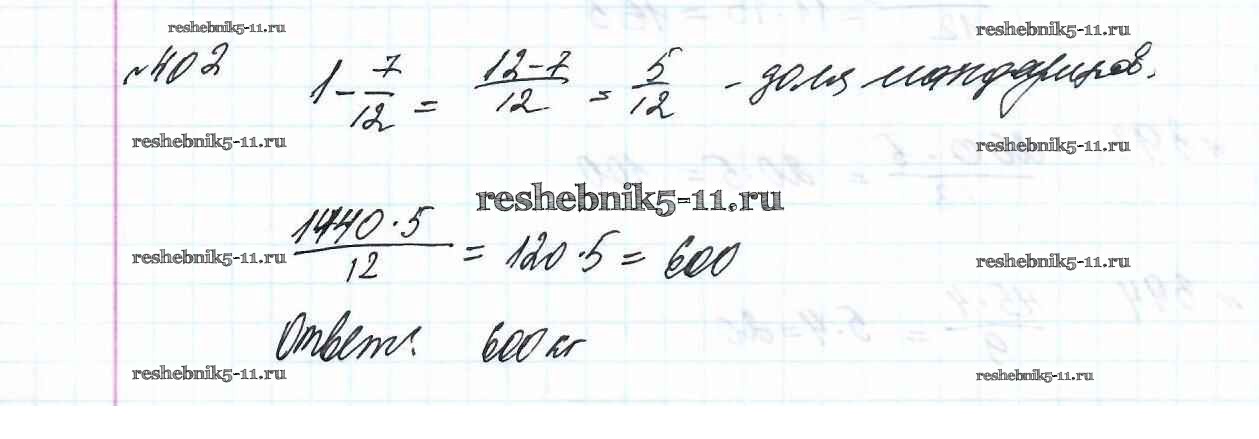 reshebnik5-11.ru reshebnik5-11.ru
№402 1 - 7/12 = 12-7/12 = 5/12 - доля мандаринов.
reshebnik5-11.ru reshebnik5-11.ru
reshebnik5-11.ru
1440·5/12 = 120·5 = 600
reshebnik5-11.ru reshebnik5-11.ru
Ответ: 600 кг
reshebnik5-11.ru reshebnik5-11.ru